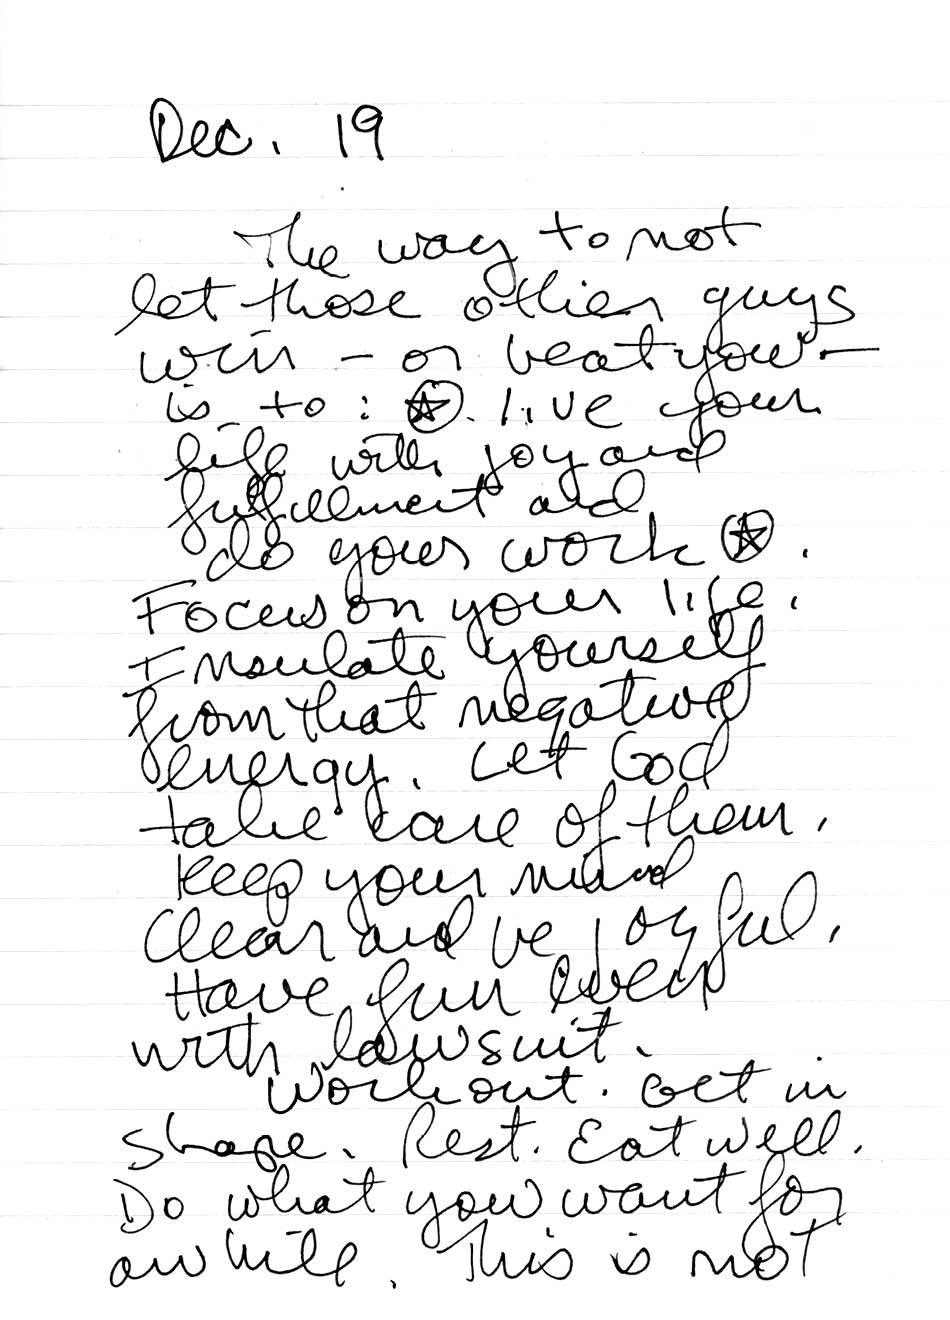 Dec. 19
The way to not
let those other guys
win - or beat you -
is to: ✪. live your
life with joy and
fulfillment and
do your work ✪.
Focus on your life.
Insulate yourself
from that negative
energy. Let God
take care of them.
Keep your mind
clear and be joyful.
Have fun even
with lawsuit.
Workout. Get in
shape. Rest. Eat well.
Do what you want for
awhile. This is not